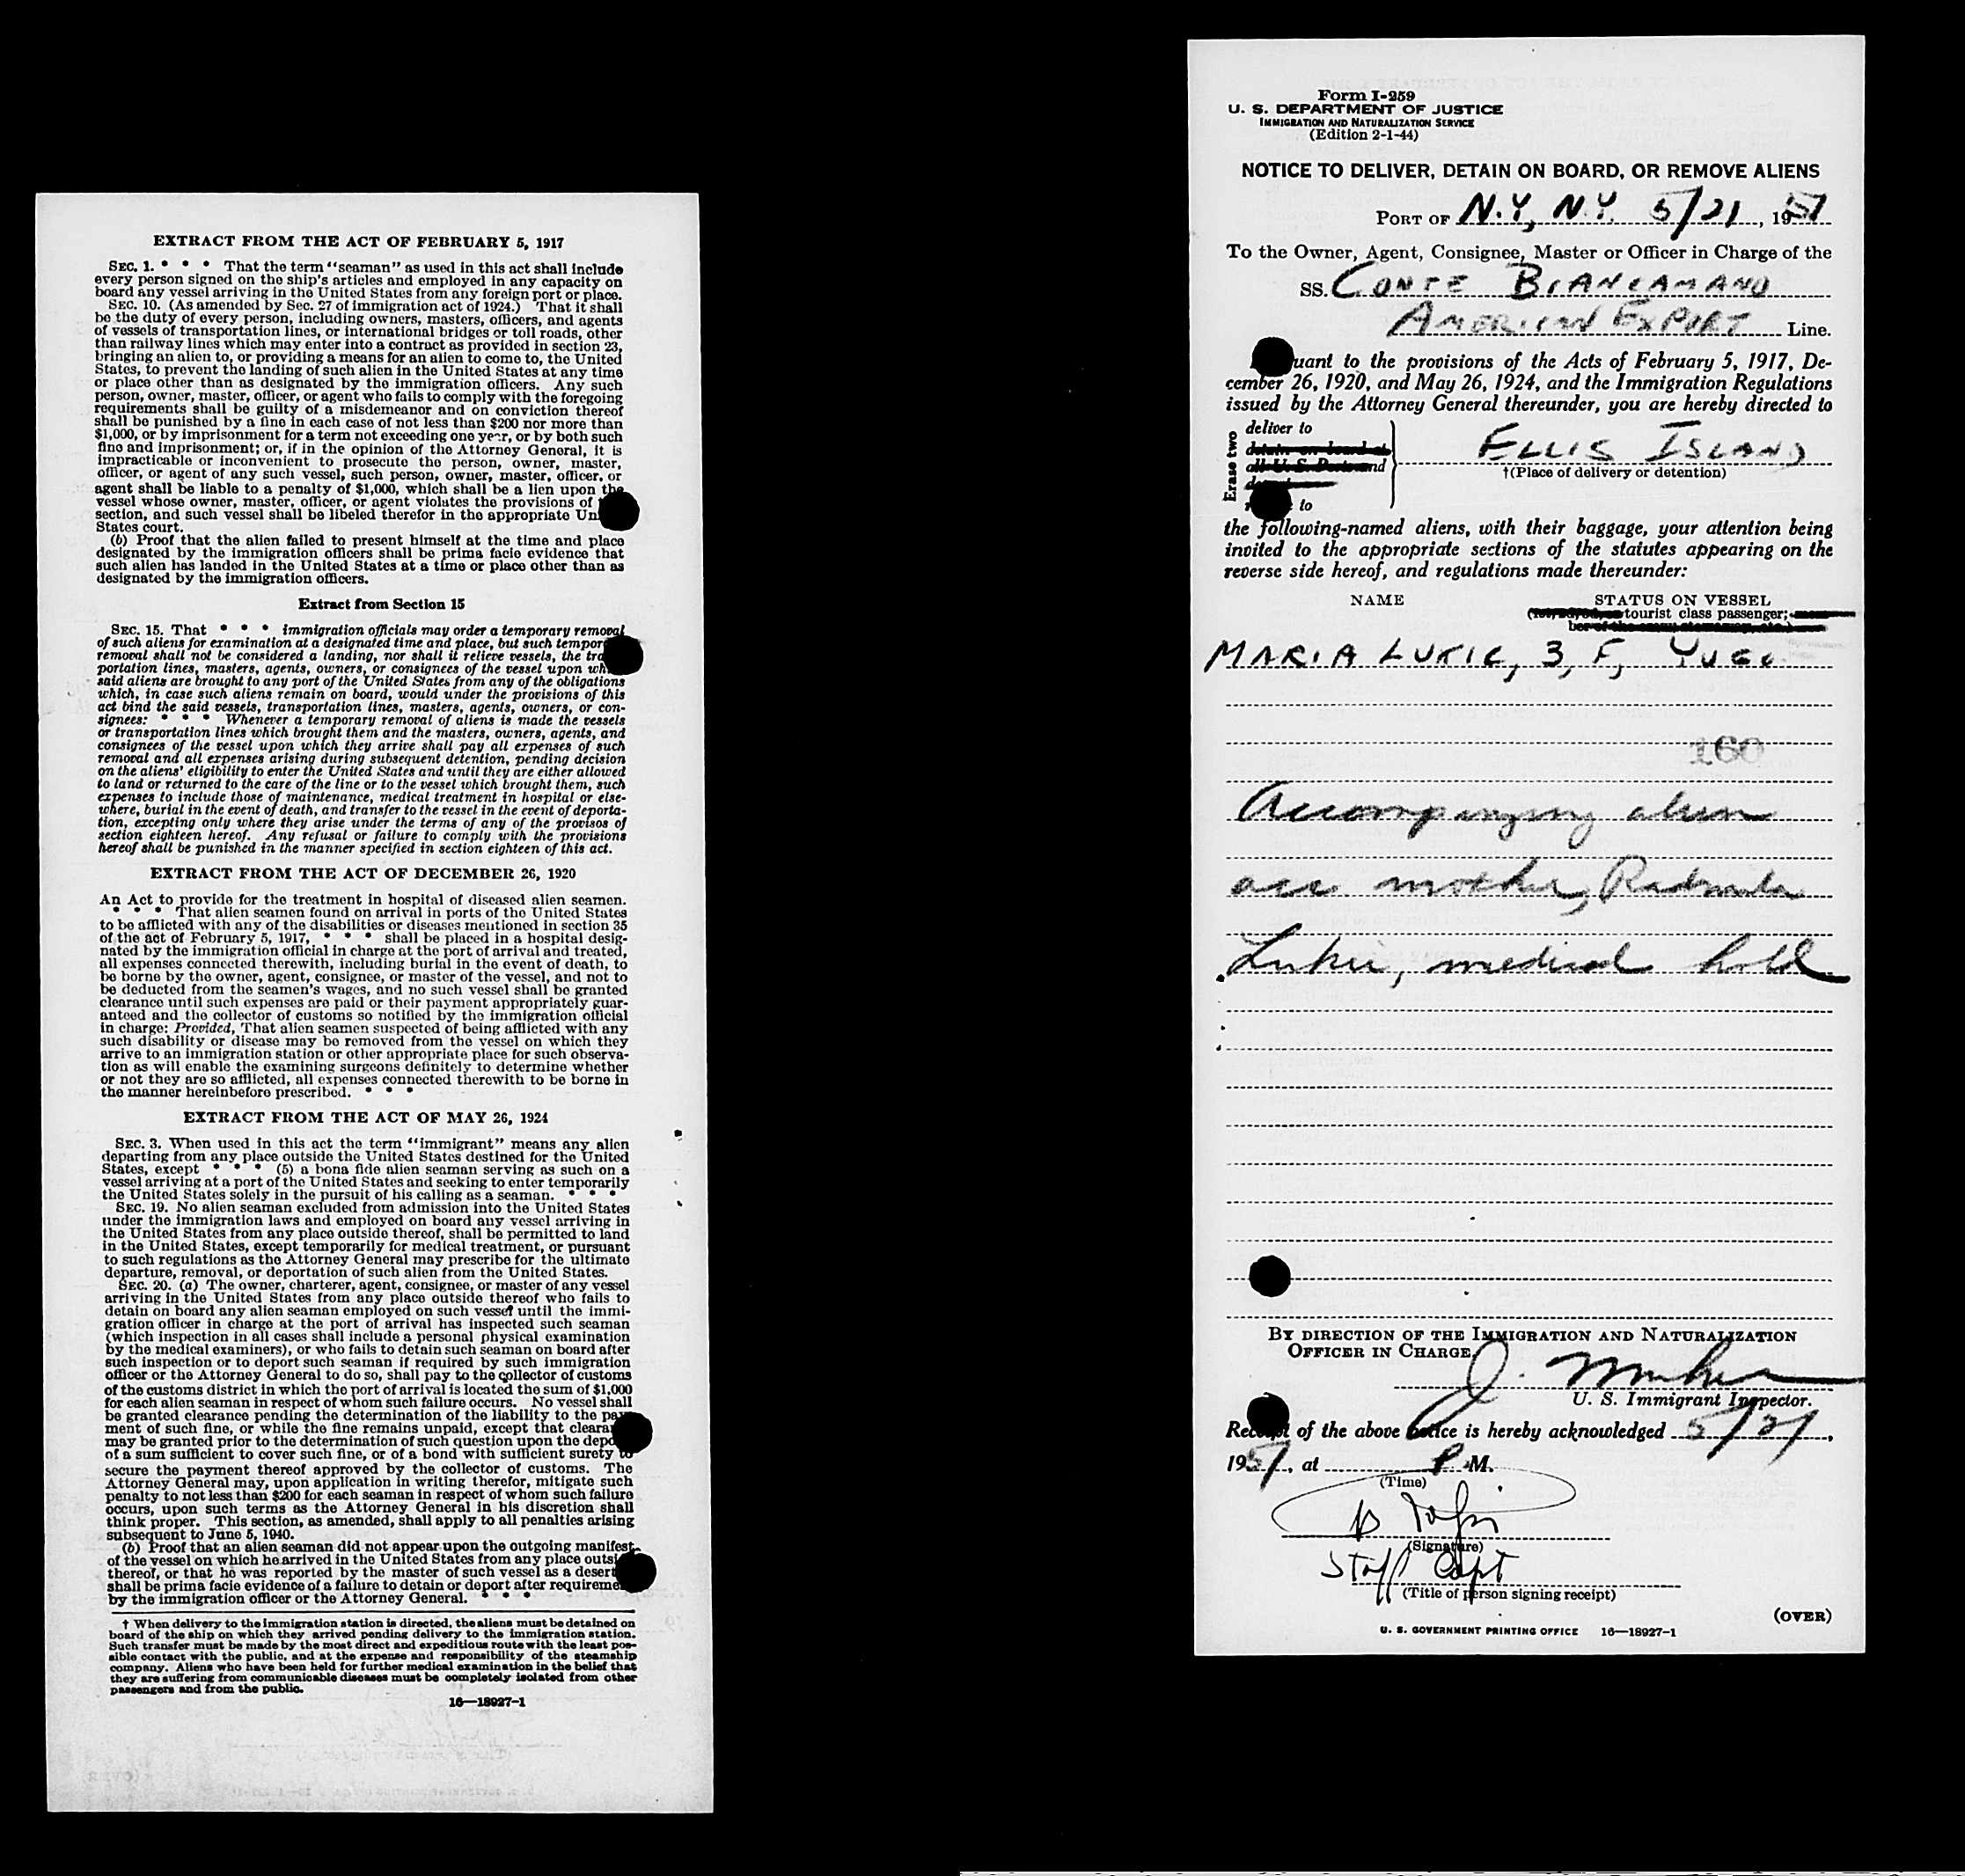 EXTRACT FROM THE ACT OF FEBRUARY 5, 1917
SEC. 1. * * * That the term "seaman" as used in this act shall include
every person signed on the ship's articles and employed in any capacity on
board any vessel arriving in the United States from any foreign port or place.
SEC. 10. (As amended by Sec. 27 of immigration act of 1924.) That it shall
be the duty of every person, including owners, masters, officers, and agents
of vessels of transportation lines, or international bridges or toll roads, other
than railway lines which may enter into a contract as provided in section 23,
bringing an alien to, or providing a means for an alien to come to, the United
States, to prevent the landing of such alien in the United States at any time
or place other than as designated by the immigration officers. Any such
person, owner, master, officer, or agent who fails to comply with the foregoing
requirements shall be guilty of a misdemeanor and on conviction thereof
shall be punished by a fine in each case of not less than $200 nor more than
$1,000, or by imprisonment for a term not exceeding one year, or by both such
fine and imprisonment; or, if in the opinion of the Attorney General, it is
impracticable or inconvenient to prosecute the person, owner, master,
officer, or agent of any such vessel, such person, owner, master, officer, or
agent shall be liable to a penalty of $1,000, which shall be a lien upon the
vessel whose owner, master, officer, or agent violates the provisions of
section, and such vessel shall be libeled therefor in the appropriate Un
States court.
(b) Proof that the alien failed to present himself at the time and place
designated by the immigration officers shall be prima facie evidence that
such alien has landed in the United States at a time or place other than as
designated by the immigration officers.
Extract from Section 15
SEC. 15. That * * * immigration officials may order a temporary removal
of such aliens for examination at a designated time and place, but such tempor
removal shall not be considered a landing, nor shall it relieve vessels, the tra
portation lines, masters, agents, owners, or consignees of the vessel upon wh
said aliens are brought to any port of the United States from any of the obligations
which, in case such aliens remain on board, would under the provisions of this
act bind the said vessels, transportation lines, masters, agents, owners, or con-
signees: * * * Whenever a temporary removal of aliens is made the vessels
or transportation lines which brought them and the masters, owners, agents, and
consignees of the vessel upon which they arrive shall pay all expenses of such
removal and all expenses arising during subsequent detention, pending decision
on the aliens' eligibility to enter the United States and until they are either allowed
to land or returned to the care of the line or to the vessel which brought them, such
expenses to include those of maintenance, medical treatment in hospital or else-
where, burial in the event of death, and transfer to the vessel in the event of deporta-
tion, excepting only where they arise under the terms of any of the provisos of
section eighteen hereof. Any refusal or failure to comply with the provisions
hereof shall be punished in the manner specified in section eighteen of this act.
EXTRACT FROM THE ACT OF DECEMBER 26, 1920
An Act to provide for the treatment in hospital of diseased alien seamen.
* * * * That alien seamen found on arrival in ports of the United States
to be afflicted with any of the disabilities or diseases mentioned in section 35
of the act of February 5, 1917, * * * shall be placed in a hospital desig-
nated by the immigration official in charge at the port of arrival and treated,
all expenses connected therewith, including burial in the event of death, to
be borne by the owner, agent, consignee, or master of the vessel, and not to
be deducted from the seamen's wages, and no such vessel shall be granted
clearance until such expenses are paid or their payment appropriately guar-
anteed and the collector of customs so notified by the immigration official
in charge: Provided, That alien seamen suspected of being afflicted with any
such disability or disease may be removed from the vessel on which they
arrive to an immigration station or other appropriate place for such observa-
tion as will enable the examining surgeons definitely to determine whether
or not they are so afflicted, all expenses connected therewith to be borne in
the manner hereinbefore prescribed. * * *
EXTRACT FROM THE ACT OF MAY 26, 1924
SEC. 3. When used in this act the term "immigrant" means any alien
departing from any place outside the United States destined for the United
States, except * * * (5) a bona fide alien seaman serving as such on a
vessel arriving at a port of the United States and seeking to enter temporarily
the United States solely in the pursuit of his calling as a seaman. * * *
SEC. 19. No alien seaman excluded from admission into the United States
under the immigration laws and employed on board any vessel arriving in
the United States from any place outside thereof, shall be permitted to land
in the United States, except temporarily for medical treatment, or pursuant
to such regulations as the Attorney General may prescribe for the ultimate
departure, removal, or deportation of such alien from the United States.
SEC. 20. (a) The owner, charterer, agent, consignee, or master of any vessel
arriving in the United States from any place outside thereof who fails to
detain on board any alien seaman employed on such vessel until the immi-
gration officer in charge at the port of arrival has inspected such seaman
(which inspection in all cases shall include a personal physical examination
by the medical examiners), or who fails to detain such seaman on board after
such inspection or to deport such seaman if required by such immigration
officer or the Attorney General to do so, shall pay to the collector of customs
of the customs district in which the port of arrival is located the sum of $1,000
for each alien seaman in respect of whom such failure occurs. No vessel shall
be granted clearance pending the determination of the liability to the pay
ment of such fine, or while the fine remains unpaid, except that cleara
may be granted prior to the determination of such question upon the depo
of a sum sufficient to cover such fine, or of a bond with sufficient surety to
secure the payment thereof approved by the collector of customs. The
Attorney General may, upon application in writing therefor, mitigate such
penalty to not less than $200 for each seaman in respect of whom such failure
occurs, upon such terms as the Attorney General in his discretion shall
think proper. This section, as amended, shall apply to all penalties arising
subsequent to June 5, 1940.
(b) Proof that an alien seaman did not appear upon the outgoing manifest
of the vessel on which he arrived in the United States from any place outsi
thereof, or that he was reported by the master of such vessel as a desert
shall be prima facie evidence of a failure to detain or deport after requireme
by the immigration officer or the Attorney General. * * *
† When delivery to the immigration station is directed, the aliens must be detained on
board of the ship on which they arrived pending delivery to the immigration station.
Such transfer must be made by the most direct and expeditious route with the least pos-
sible contact with the public, and at the expense and responsibility of the steamship
company. Aliens who have been held for further medical examination in the belief that
they are suffering from communicable diseases must be completely isolated from other
passengers and from the public.
16—18927-1
Form I-259
U. S. DEPARTMENT OF JUSTICE
IMMIGRATION AND NATURALIZATION SERVICE
(Edition 2-1-44)
NOTICE TO DELIVER, DETAIN ON BOARD, OR REMOVE ALIENS
PORT OF N.Y, N.Y. 5/21, 1951
To the Owner, Agent, Consignee, Master or Officer in Charge of the
SS. CONTE BIANCAMANO
AMERICAN EXPORT Line.
uant to the provisions of the Acts of February 5, 1917, De-
cember 26, 1920, and May 26, 1924, and the Immigration Regulations
issued by the Attorney General thereunder, you are hereby directed to
Erase two
deliver to
detain on board at
all U. S. Ports and
to
ELLIS ISLAND
†(Place of delivery or detention)
the following-named aliens, with their baggage, your attention being
invited to the appropriate sections of the statutes appearing on the
reverse side hereof, and regulations made thereunder:
NAME STATUS ON VESSEL
tourist class passenger;
MARIA LUKIC, 3, F, YUGO
160
Accompanying alien
acc mother, Radmila
Lukic, medical hold
BY DIRECTION OF THE IMMIGRATION AND NATURALIZATION
OFFICER IN CHARGE.
J.
U. S. Immigrant Inspector.
Receipt of the above notice is hereby acknowledged 5/21,
1951, at P.M.
(Time)
(Signature)
Staff Capt
(Title of person signing receipt)
(OVER)
U. S. GOVERNMENT PRINTING OFFICE 16—18927-1